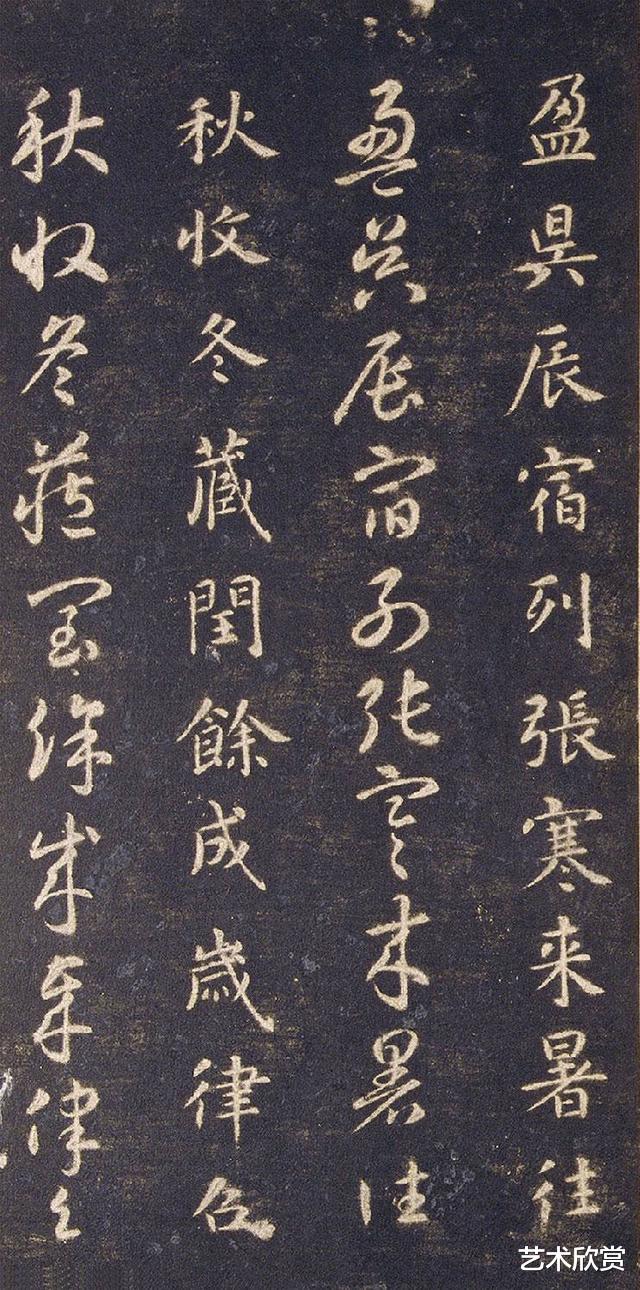 盈昃辰宿列張寒来暑往
盈昃辰宿列張寒来暑往
秋收冬藏閏餘成歲律召
秋收冬藏閏餘成歲律召
艺术欣赏